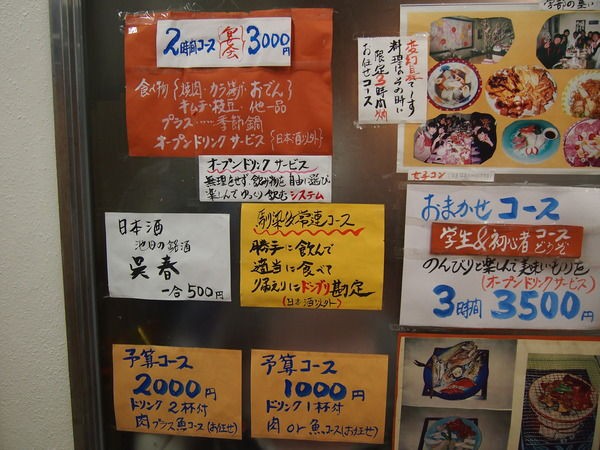 2時間コース 宴会 3000円
食べ物{焼肉・カラ揚げ・おでん}
キムチ・枝豆・他一品
プラス……季節鍋
オープンドリンクサービス{日本酒以外}
オープンドリンクサービス
無理をせず、飲み物を自由に選び、
楽しんでゆっくり飲むシステム
料理はその時に
限定3時間
お任せコース
女子コン
学部の集い
日本酒
池田の銘酒
呉春
一合500円
馴染&常連コース
勝手に飲んで
適当に食べて
帰えりにドンブリ勘定
(日本酒以外)
おまかせコース
学生&初心者コース
どうぞ
のんびりと楽しんで美味いもりを
(オープンドリンクサービス)
3時間 3500円
予算コース
2000円
ドリンク2杯付
肉プラス魚コース(お任せ)
予算コース
1000円
ドリンク1杯付
肉or魚コース(お任せ)